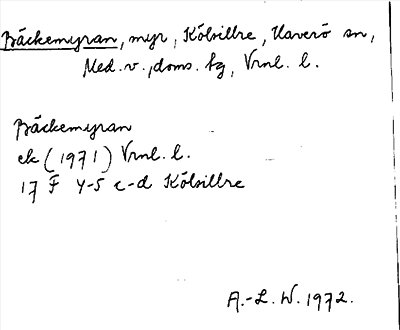 Bäckemyran, myr, Kölsillre, Haverö sn,
Med. v., doms. fg, Vrnl. l.
Bäckemyran
ek (1971) Vrnl. l.
17 F 4-5 c-d Kölsillre
A.-L. W. 1972.